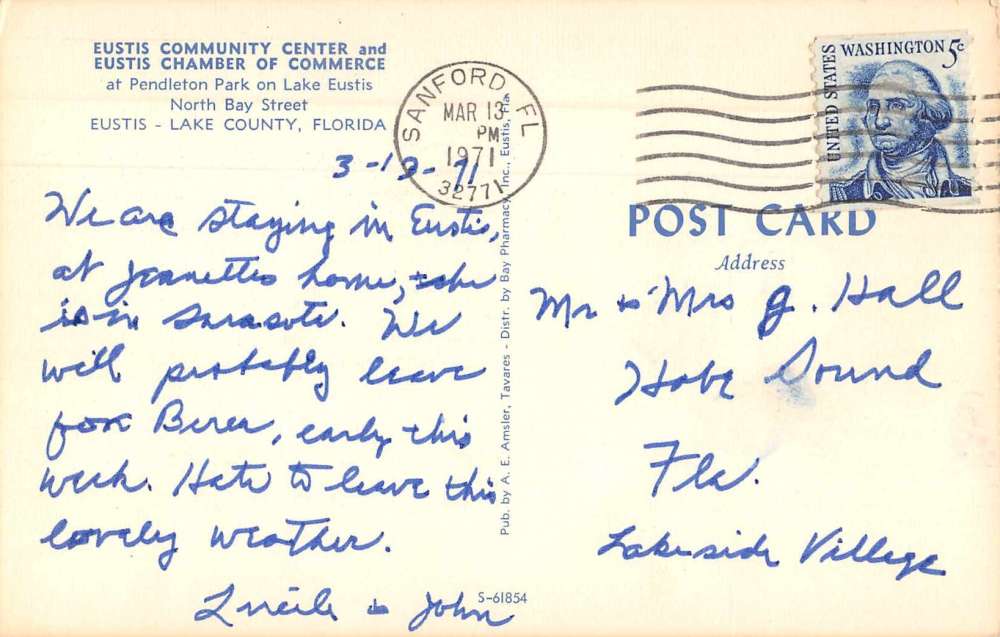 EUSTIS COMMUNITY CENTER and
EUSTIS CHAMBER OF COMMERCE
at Pendleton Park on Lake Eustis
North Bay Street
EUSTIS - LAKE COUNTY, FLORIDA
SANFORD, FL
MAR 13
PM
1971
32771
UNITED STATES
WASHINGTON 5c
3-12-71
We are staying in Eustis,
at Jeanettes home, + she
is in Sarasota. We
will probably leave
for Berea, early this
week. Hate to leave this
lovely weather.
Lucile & John
Pub. by A. E. Amsler, Tavares - Distr. by Bay Pharmacy, Inc., Eustis, Fla.
S-61854
POST CARD
Address
Mr & Mrs G. Hall
Hobe Sound
Fla.
Lakeside Village